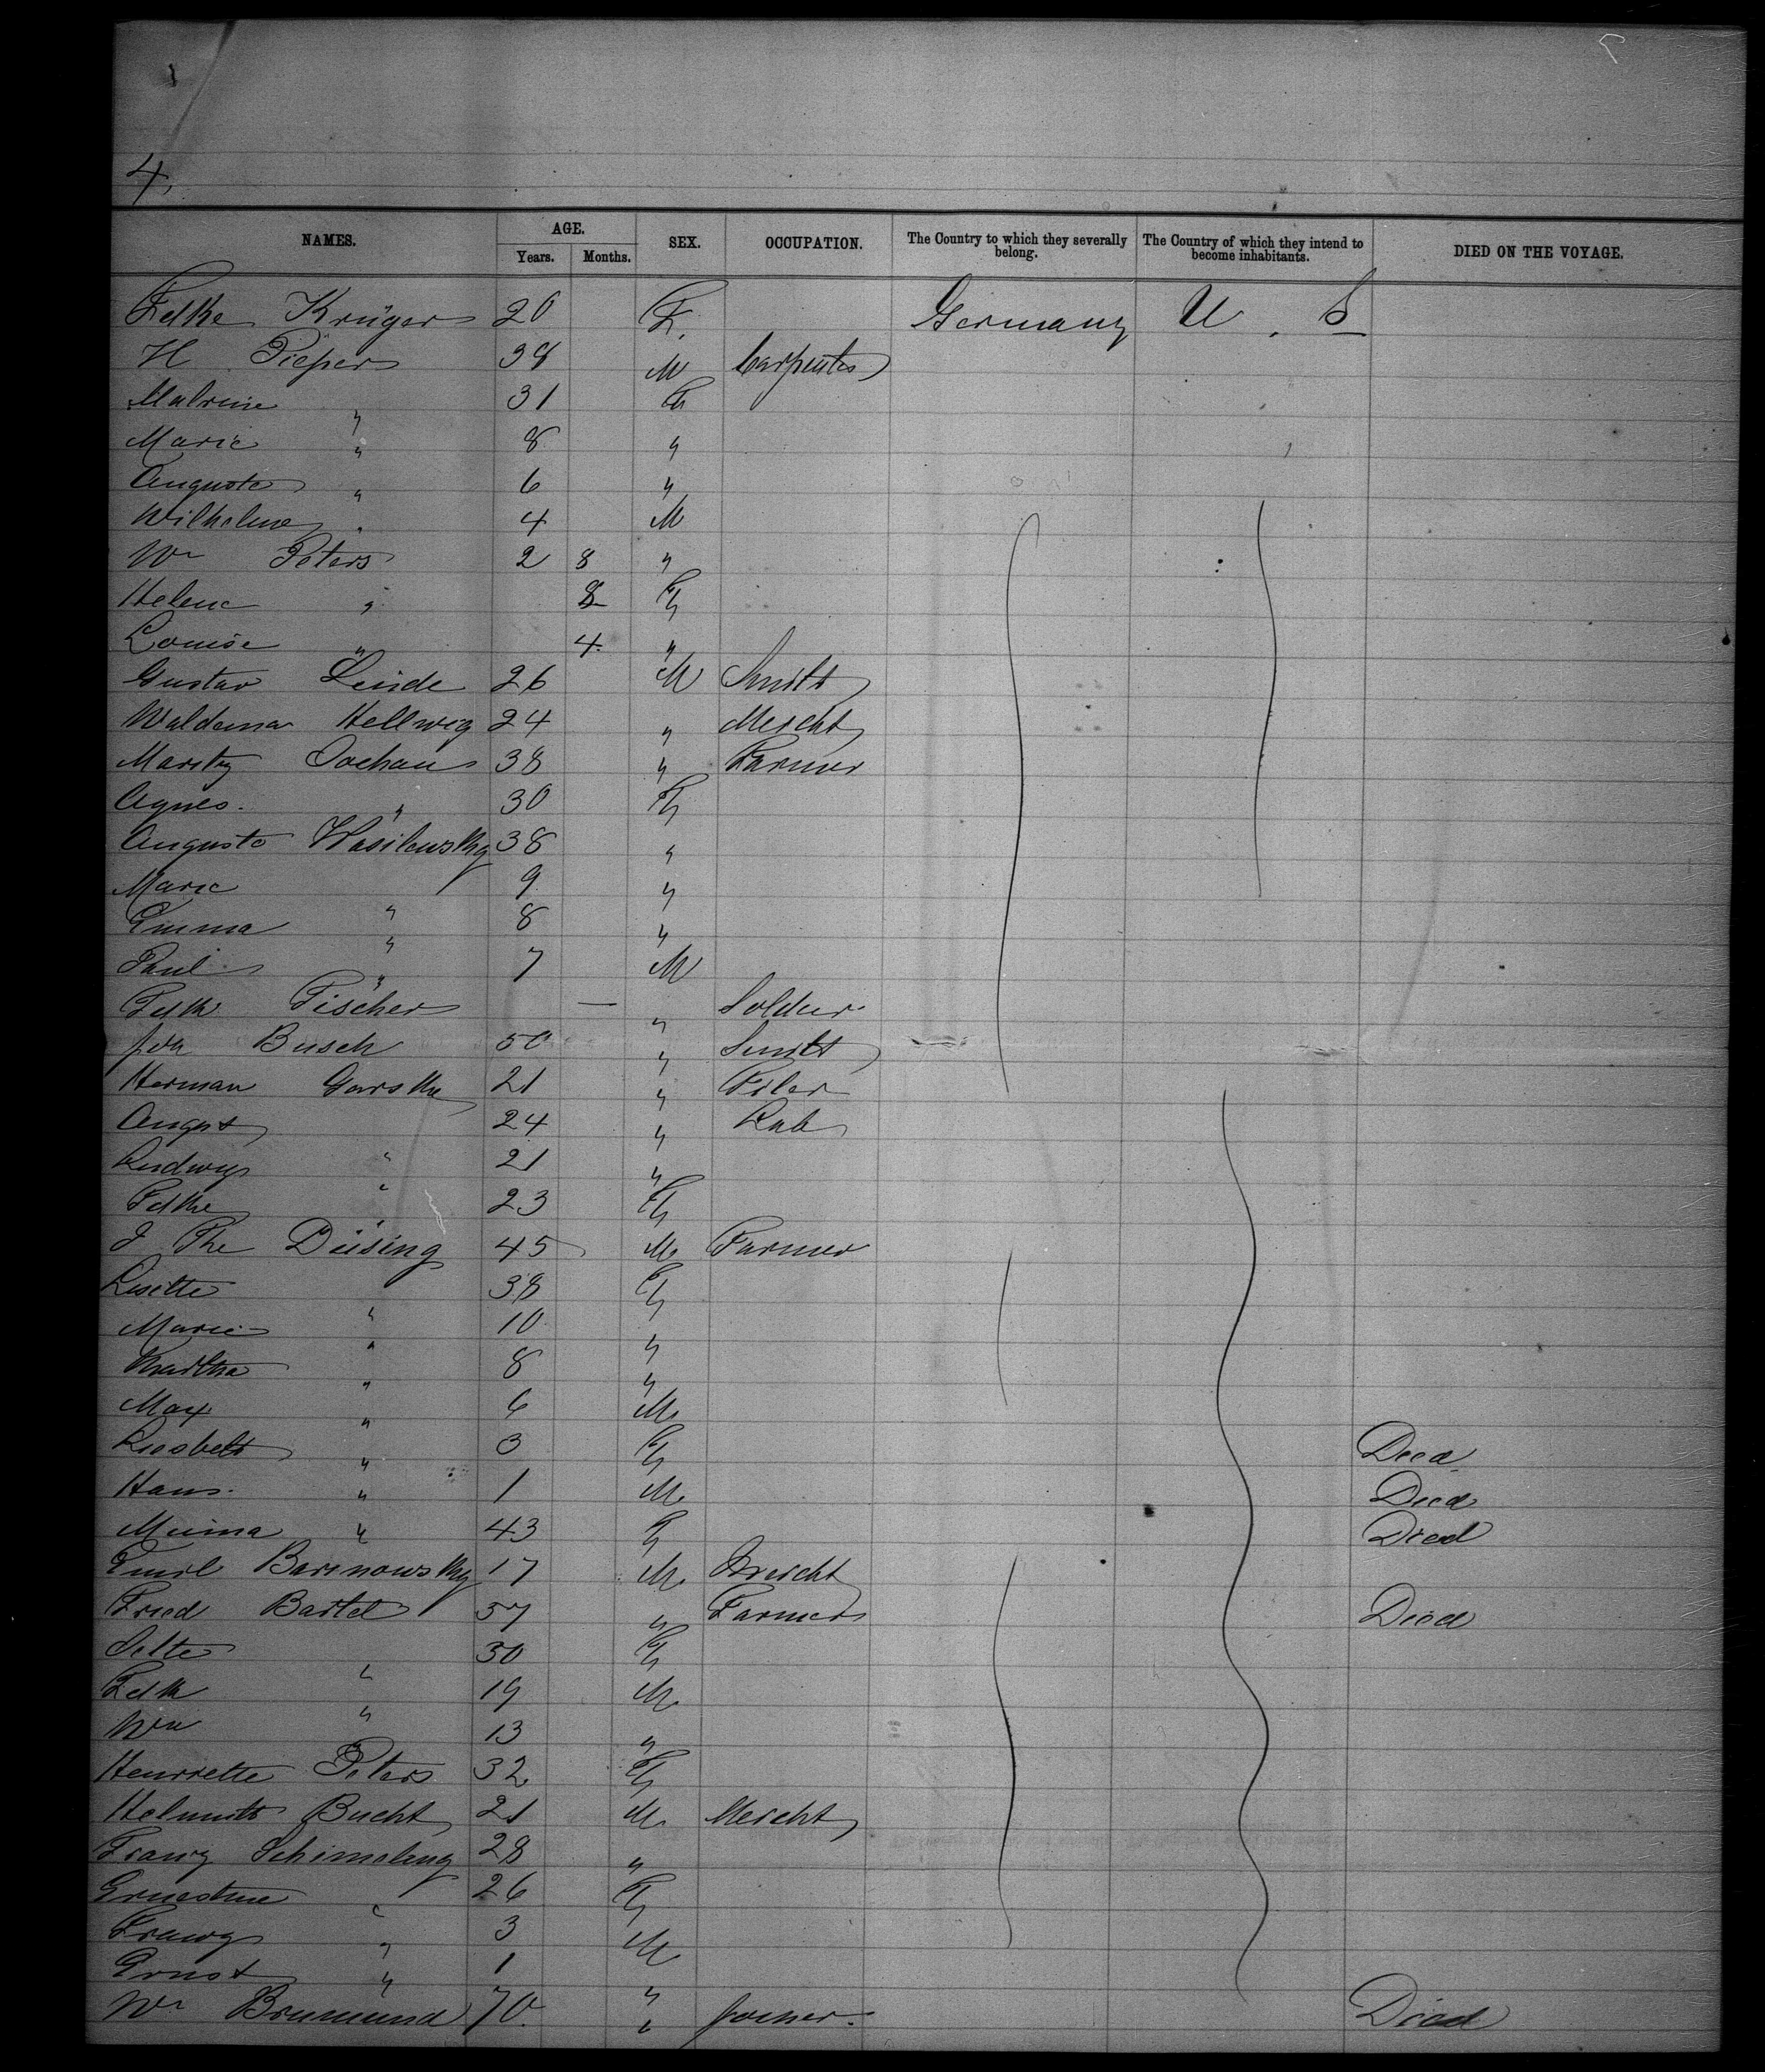 4.
NAMES. AGE. SEX. OCCUPATION. The Country to which they severally belong. The Country of which they intend to become inhabitants. DIED ON THE VOYAGE.
Years. Months.
Fdke Krüger 20 F. Germany U. S
H Pieper 38 M Carpenter
Malvine " 31 F
Marie " 8 "
Auguste " 6 "
Wilhelme " 4 M
Wm Peters 2 8 "
Helene " 8 F
Louise " 4 "
Gustav Leide 26 M Smith
Waldemar Hellwig 24 " Mercht
Jochau 38 " Farmer
Agnes " 30 F
Auguste Wasilewsky 38 "
Marie " 9 "
Emma " 8 "
Paul " 7 M
Fdk Fischer — " Soldier
Joh Busch 50 " Smith
Herman Garske 21 "
August " 24 " Lab
Ludwig " 21 "
Fdke " 23 F
J Düsing 45 M Farmer
Lisette " 38 F
Marie " 10 "
Martha " 8 "
Max " 6 M
Liesbeth " 3 F Died
Hans " 1 M Died
Minna " 43 F Died
Emil Barsnowsky 17 M Mercht
Fried Bartel 57 " Farmer Died
Jette " 50 F
Fdk " 19 M
Wm " 13 "
Henriette Peters 32 F
Helmuth Bucht 21 M Mercht
Franz Schimeling 28 "
Ernestine " 26 F
Franz " 3 M
Ernst " 1 "
Wm Brumund 70 " Joiner. Died